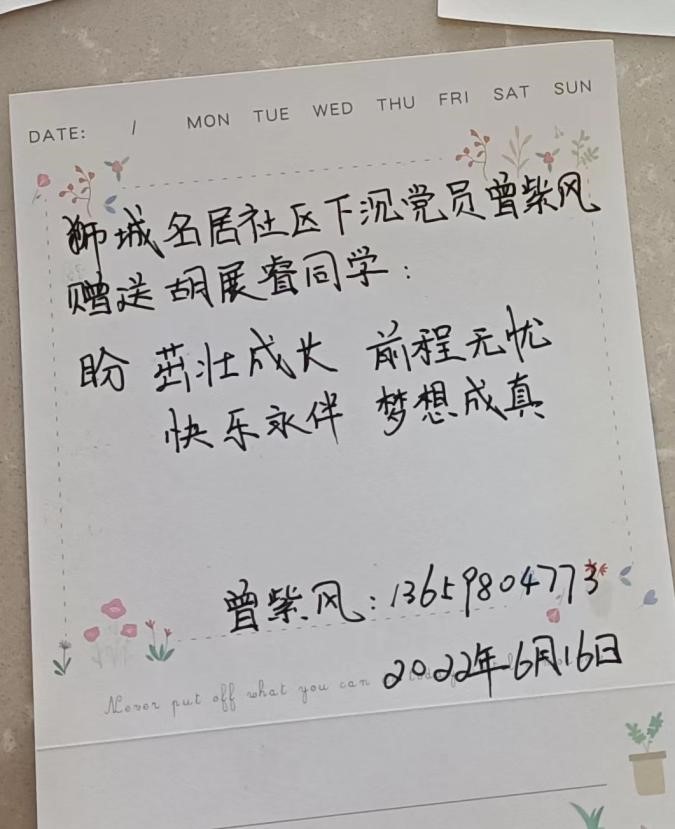 DATE: / MON TUE WED THU FRI SAT SUN
狮城名居社区下沉党员曾紫风
赠送胡展睿同学：
盼 茁壮成长 前程无忧
快乐永伴 梦想成真
曾紫风：13659804773
2022年6月16日
Never put off what you can